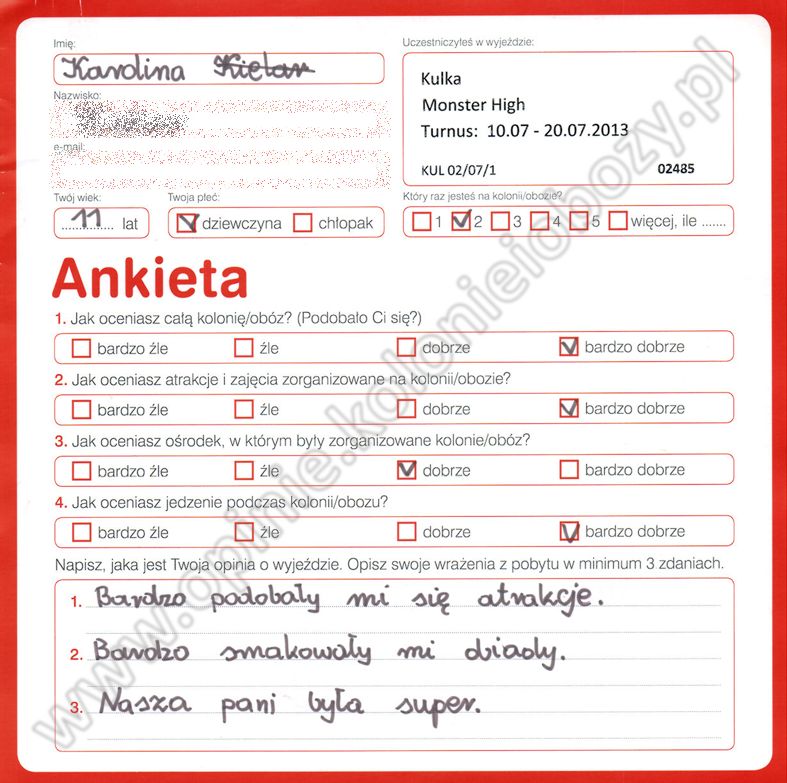 Imię:
Uczestniczyłeś w wyjeździe:
Karolina
Kulka
Monster High
Turnus: 10.07 - 20.07.2013
KUL 02/07/1 02485
Nazwisko:
e-mail:
Twój wiek:
Twoja płeć:
Który raz jesteś na kolonii/obozie?
11 lat
dziewczyna chłopak
1 2 3 4 5 więcej, ile .......
Ankieta
1. Jak oceniasz całą kolonię/obóz? (Podobało Ci się?)
bardzo źle źle dobrze bardzo dobrze
2. Jak oceniasz atrakcje i zajęcia zorganizowane na kolonii/obozie?
bardzo źle źle dobrze bardzo dobrze
3. Jak oceniasz ośrodek, w którym były zorganizowane kolonie/obóz?
bardzo źle źle dobrze bardzo dobrze
4. Jak oceniasz jedzenie podczas kolonii/obozu?
bardzo źle źle dobrze bardzo dobrze
Napisz, jaka jest Twoja opinia o wyjeździe. Opisz swoje wrażenia z pobytu w minimum 3 zdaniach.
1. Bardzo podobały mi się atrakcje.
2. Bardzo smakowały mi obiady.
3. Nasza pani była super.
www.opinie.kolonieiobozy.pl